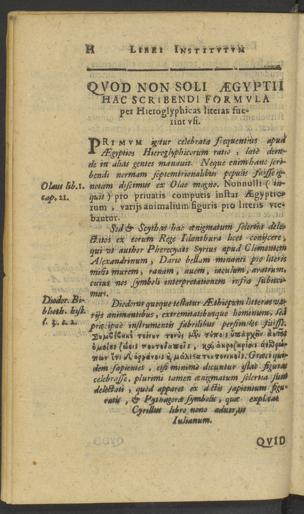 LIBRI INSTITVTVM
QVOD NON SOLI ÆGYPTII
HAC SCRIBENDI FORMVLA
per Hieroglyphicas literas fue-
rint vsi.
PRIMVM igitur celebrata frequentius apud
Ægyptios Hieroglyphicorum ratio, late dein-
de in alias gentes manauit. Neque enim hanc scri-
bendi normam septentrionalibus populis fuisse ig-
Olaus lib. 1.
cap. 21.
notam discimus ex Olao magno. Nonnulli (in-
quit) pro priuatis computis instar Ægyptio-
rum, varijs animalium figuris pro literis vte-
bantur.
Sed & Scythas hac ænigmatum solertia dele-
ctatos ex eorum Rege Idanthura licet conijcere,
qui vt author Pherecydes Syrus apud Clementem
Alexandrinum, Dario bellum minanti pro literis
misit murem, ranam, auem, iaculum, aratrum,
cuius nos symboli interpretationem infra subijcie-
mus.
Diodor. Bi-
blioth. hist.
Diodorus quoque testatur Æthiopum litteras va-
rijs animantibus, extremitatibusque hominum, sed
præcipuè instrumentis fabrilibus persimiles fuisse.
Græci qui-
dem sapientes, etsi minimè dicuntur istas figuras
celebrasse, plurimi tamen ænigmatum solertia sunt
delectati, quod apparet ex dictis sapientium figu-
ratis, & Pythagoræ symbolis, quæ explicat
Cyrillus libro nono aduersus
Iulianum.
QVID